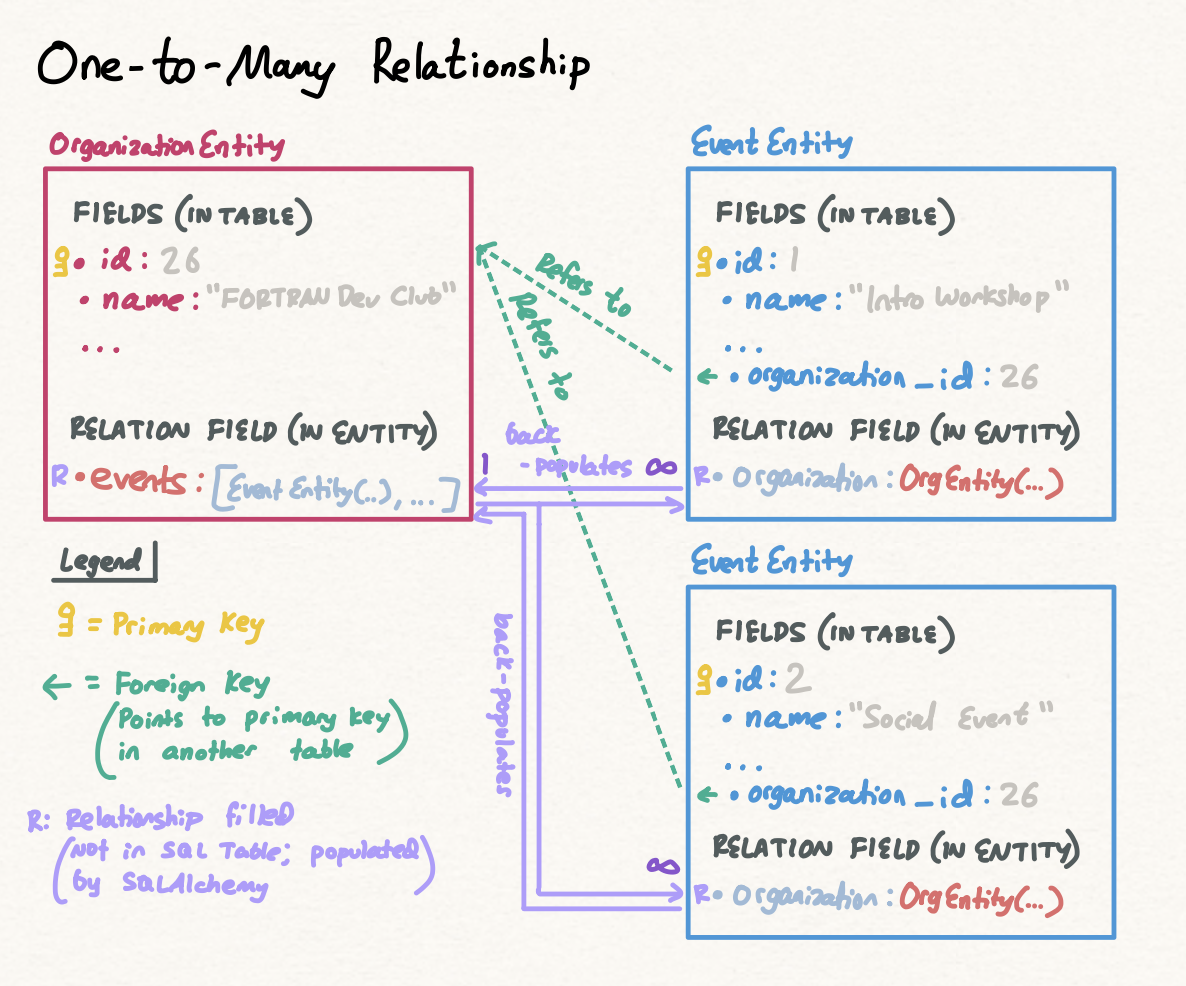 One-to-Many Relationship
Organization Entity
FIELDS (IN TABLE)
• id: 26
• name: "FORTRAN Dev Club"
...
RELATION FIELD (IN ENTITY)
R • events: [Event Entity(..), ...]
Event Entity
FIELDS (IN TABLE)
• id: 1
• name: "Intro Workshop"
...
← • organization_id: 26
RELATION FIELD (IN ENTITY)
R • Organization: OrgEntity(...)
Refers to
Refers to
back
-populates
1
∞
back-populates
∞
Event Entity
FIELDS (IN TABLE)
• id: 2
• name: "Social Event"
...
← • organization_id: 26
RELATION FIELD (IN ENTITY)
R • Organization: OrgEntity(...)
Legend
= Primary Key
← = Foreign Key
(Points to primary key
in another table)
R: Relationship filled
(Not in SQL Table; populated
by SQLAlchemy)